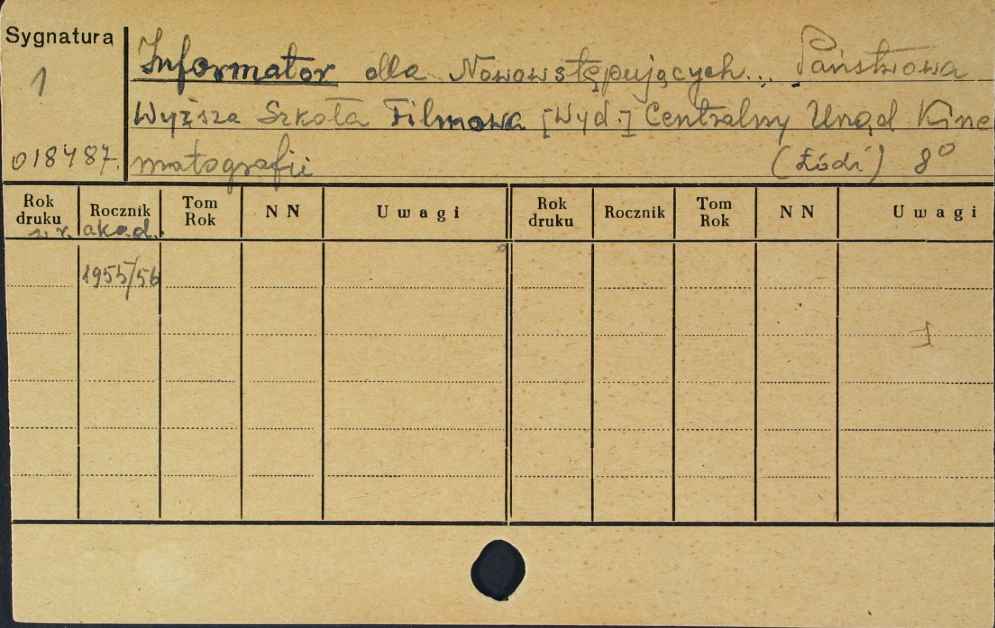 Sygnatura
1
018487.
Informator dla Nowowstępujących... Państwowa
Wyższa Szkoła Filmowa [Wyd:] Centralny Urząd Kine
matografii (Łódź) 8°
Rok druku Rocznik Tom Rok NN Uwagi Rok druku Rocznik Tom Rok NN Uwagi
w r. akad.
1955/56
1